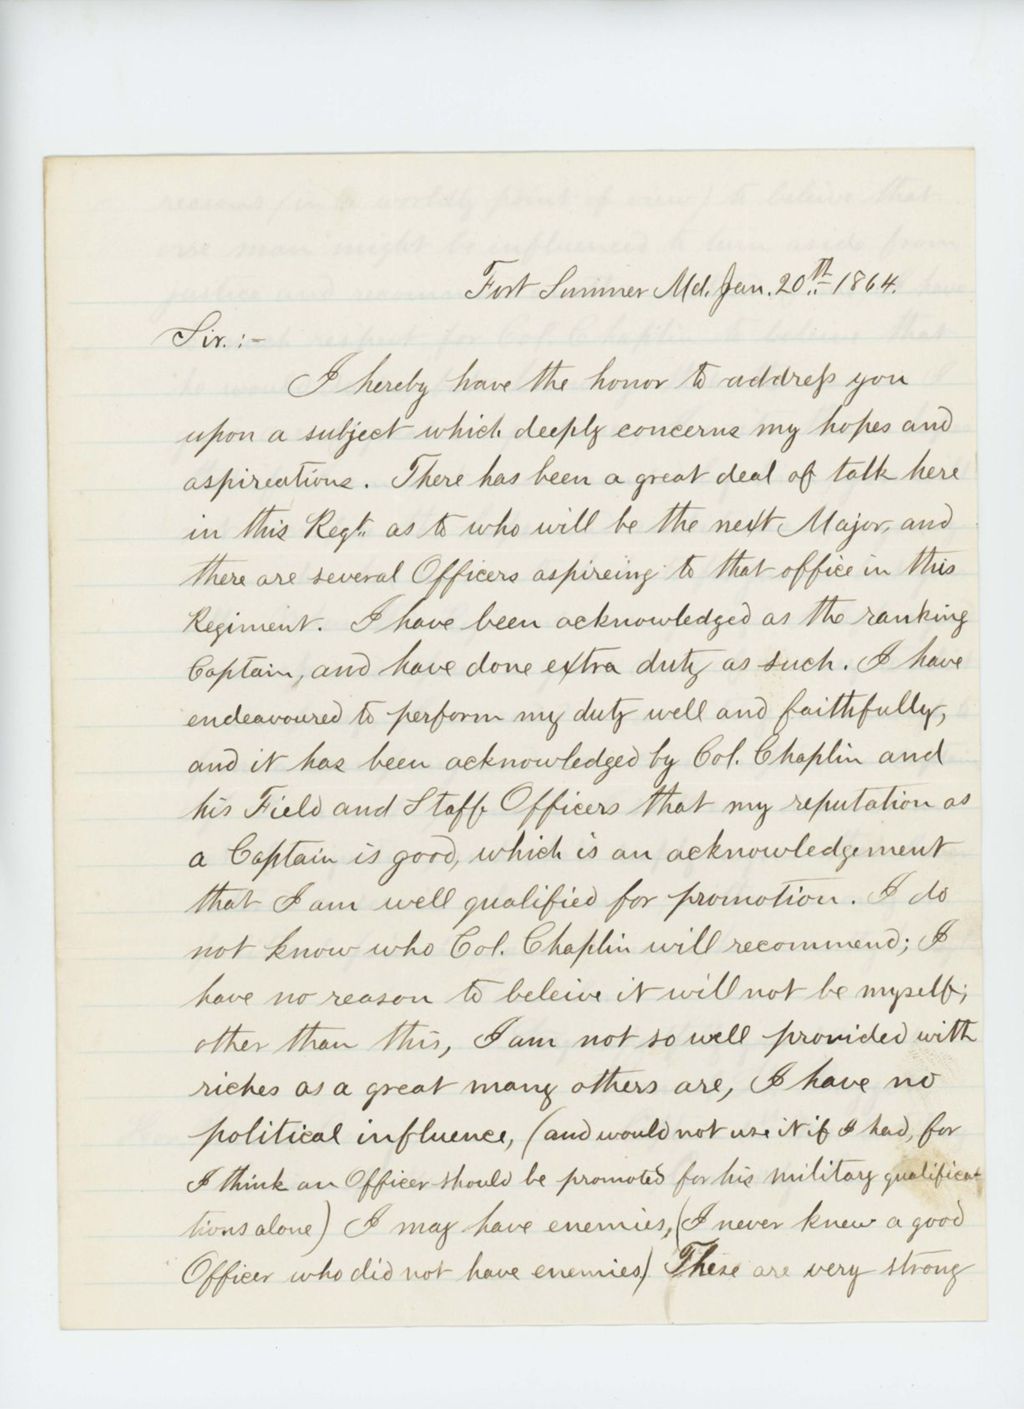 Fort Sumner Md. Jan. 20th 1864.
Sir.:-
I hereby have the honor to address you
upon a subject which deeply concerns my hopes and
aspireations. There has been a great deal of talk here
in this Regt. as to who will be the next Major, and
there are several Officers aspireing to that office in this
Regiment. I have been acknowledged as the ranking
Captain, and have done extra duty as such. I have
endeavoured to perform my duty well and faithfully,
and it has been acknowledged by Col. Chaplin and
his Field and Staff Officers that my reputation as
a Captain is good, which is an acknowledgement
that I am well qualified for promotion. I do
not know who Col. Chaplin will recommend; I
have no reason to beleive it will not be myself;
other than this, I am not so well provided with
riches as a great many others are, I have no
political influence, (and would not use it if I had, for
I think an Officer should be promoted for his military qualifica-
tions alone) I may have enemies, (I never knew a good
Officer who did not have enemies) These are very strong